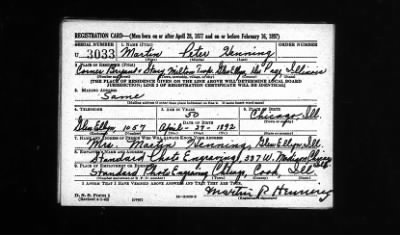 REGISTRATION CARD—(Men born on or after April 28, 1877 and on or before February 16, 1897)
SERIAL NUMBER 1. NAME (Print) ORDER NUMBER
U 3033 Martin Peter Henning
2. PLACE OF RESIDENCE (Print)
Corner Bryant + Story Milton Twp. Glen Ellyn Du Page Illinois
[THE PLACE OF RESIDENCE GIVEN ON THE LINE ABOVE WILL DETERMINE LOCAL BOARD
JURISDICTION; LINE 2 OF REGISTRATION CERTIFICATE WILL BE IDENTICAL]
3. MAILING ADDRESS
Same
[Mailing address if other than place indicated on line 2. If same insert word same]
4. TELEPHONE 5. AGE IN YEARS 6. PLACE OF BIRTH
50 Chicago
DATE OF BIRTH
Glen Ellyn 1057 April - 29 - 1892 Ill.
7. NAME AND ADDRESS OF PERSON WHO WILL ALWAYS KNOW YOUR ADDRESS
Mrs. Martin Henning, Glen Ellyn, Ill.
8. EMPLOYER'S NAME AND ADDRESS
Standard Photo Engraving, 337 W. Madison
9. PLACE OF EMPLOYMENT OR BUSINESS
Standard Photo Engraving Chicago, Cook, Ill.
I AFFIRM THAT I HAVE VERIFIED ABOVE ANSWERS AND THAT THEY ARE TRUE.
D. S. S. Form 1
Martin P. Henning